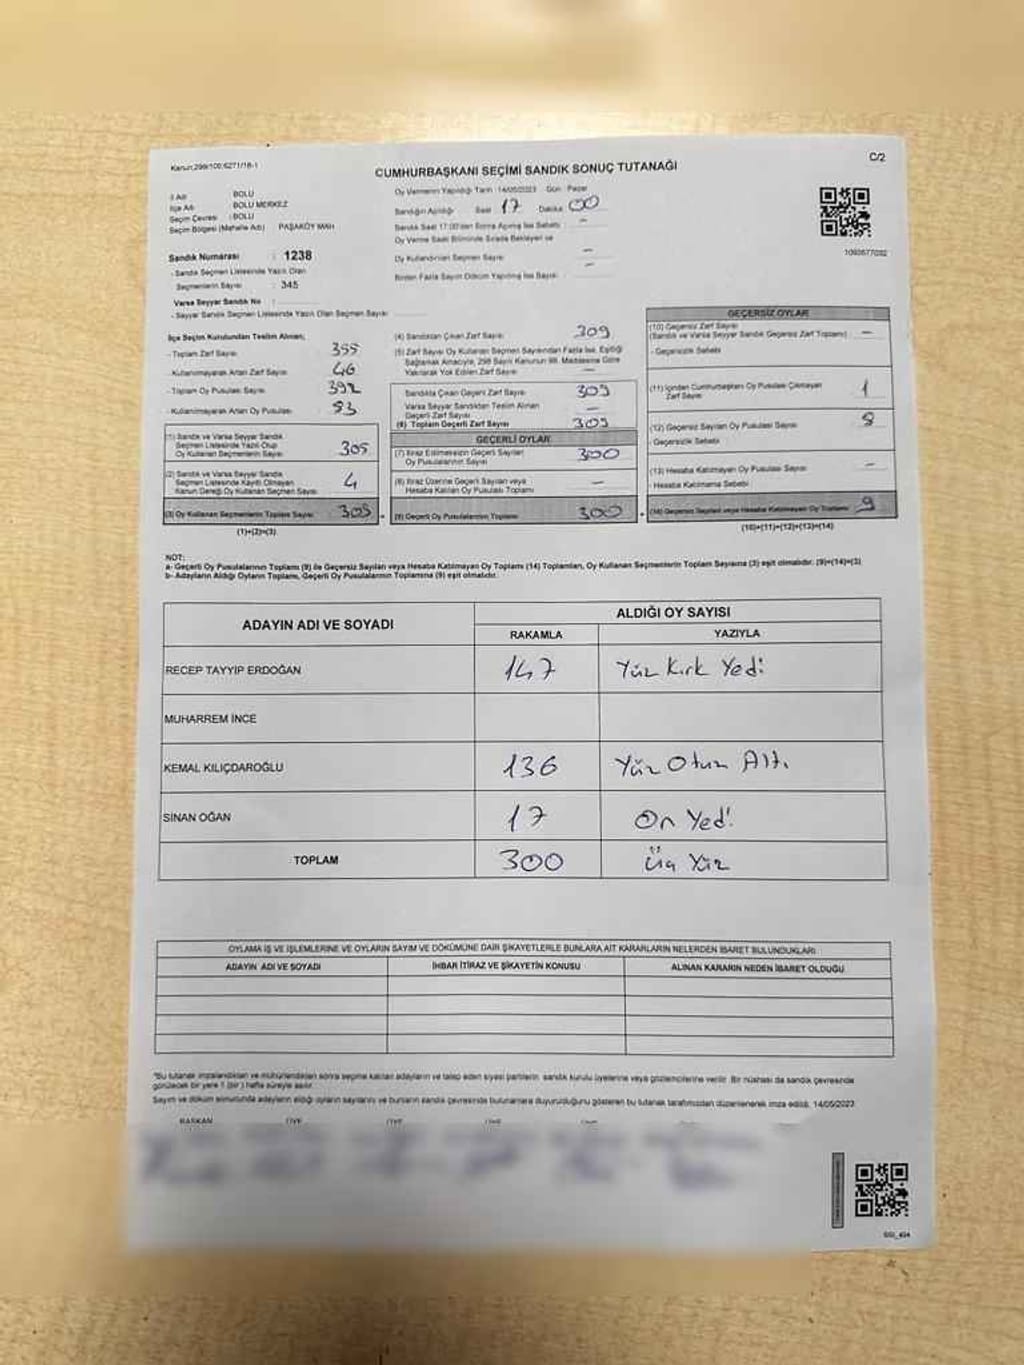 Kanun:298/100;6271/18-1
C/2
CUMHURBAŞKANI SEÇİMİ SANDIK SONUÇ TUTANAĞI
İl Adı : BOLU
İlçe Adı : BOLU MERKEZ
Seçim Çevresi : BOLU
Seçim Bölgesi (Mahalle Adı) PAŞAKÖY MAH
Sandık Numarası : 1238
- Sandık Seçmen Listesinde Yazılı Olan
Seçmenlerin Sayısı : 345
Varsa Seyyar Sandık No :
- Seyyar Sandık Seçmen Listesinde Yazılı Olan Seçmen Sayısı
Oy Vermenin Yapıldığı Tarih : 14/05/2023 Gün : Pazar
Sandığın Açıldığı Saat 17 Dakika 00
Sandık Saat 17:00'den Sonra Açılmış İse Sebebi : –
Oy Verme Saati Bitiminde Sırada Bekleyen ve
Oy Kullandırılan Seçmen Sayısı –
Birden Fazla Sayım Döküm Yapılmış İse Sayısı –
1093677032
İlçe Seçim Kurulundan Teslim Alınan;
- Toplam Zarf Sayısı 355
- Kullanılmayarak Artan Zarf Sayısı 46
- Toplam Oy Pusulası Sayısı 392
- Kullanılmayarak Artan Oy Pusulası 83
(1) Sandık ve Varsa Seyyar Sandık
Seçmen Listesinde Yazılı Olup
Oy Kullanan Seçmenlerin Sayısı 305
(2) Sandık ve Varsa Seyyar Sandık
Seçmen Listesinde Kayıtlı Olmayan
Kanun Gereği Oy Kullanan Seçmen Sayısı 4
(3) Oy Kullanan Seçmenlerin Toplam Sayısı 309
(1)+(2)=(3)
(4) Sandıktan Çıkan Zarf Sayısı 309
(5) Zarf Sayısı Oy Kullanan Seçmen Sayısından Fazla İse, Eşitliği
Sağlamak Amacıyla, 298 Sayılı Kanunun 98. Maddesine Göre
Yakılarak Yok Edilen Zarf Sayısı –
Sandıkta Çıkan Geçerli Zarf Sayısı 309
Varsa Seyyar Sandıktan Teslim Alınan
Geçerli Zarf Sayısı –
(6) Toplam Geçerli Zarf Sayısı 309
GEÇERLİ OYLAR
(7) İtiraz Edilmeksizin Geçerli Sayılan
Oy Pusulalarının Sayısı 300
(8) İtiraz Üzerine Geçerli Sayılan veya
Hesaba Katılan Oy Pusulası Toplamı –
(9) Geçerli Oy Pusulalarının Toplamı 300
GEÇERSİZ OYLAR
(10) Geçersiz Zarf Sayısı
(Sandık ve Varsa Seyyar Sandık Geçersiz Zarf Toplamı) –
- Geçersizlik Sebebi
(11) İçinden Cumhurbaşkanı Oy Pusulası Çıkmayan
Zarf Sayısı 1
(12) Geçersiz Sayılan Oy Pusulası Sayısı 8
- Geçersizlik Sebebi
(13) Hesaba Katılmayan Oy Pusulası Sayısı –
- Hesaba Katılmama Sebebi
(14) Geçersiz Sayılan veya Hesaba Katılmayan Oy Toplamı 9
(10)+(11)+(12)+(13)=(14)
NOT:
a- Geçerli Oy Pusulalarının Toplamı (9) ile Geçersiz Sayılan veya Hesaba Katılmayan Oy Toplamı (14) Toplamları, Oy Kullanan Seçmenlerin Toplam Sayısına (3) eşit olmalıdır. (9)+(14)=(3)
b- Adayların Aldığı Oyların Toplamı, Geçerli Oy Pusulalarının Toplamına (9) eşit olmalıdır.
ADAYIN ADI VE SOYADI ALDIĞI OY SAYISI
RAKAMLA YAZIYLA
RECEP TAYYIP ERDOĞAN 147 Yüz Kırk Yedi
MUHARREM İNCE
KEMAL KILIÇDAROĞLU 136 Yüz Otuz Altı
SINAN OĞAN 17 On Yedi
TOPLAM 300 Üç Yüz
OYLAMA İŞ VE İŞLEMLERİNE VE OYLARIN SAYIM VE DÖKÜMÜNE DAİR ŞİKAYETLERLE BUNLARA AİT KARARLARIN NELERDEN İBARET BULUNDUKLARI
ADAYIN ADI VE SOYADI İHBAR İTİRAZ VE ŞİKAYETİN KONUSU ALINAN KARARIN NEDEN İBARET OLDUĞU
*Bu tutanak imzalandıktan ve mühürlendikten sonra seçime katılan adayların ve talep eden siyasi partilerin sandık kurulu üyelerine veya gözlemcilerine verilir. Bir nüshası da sandık çevresinde
görülecek bir yere 1 (bir) hafta süreyle asılır.
Sayım ve döküm sonucunda adayların aldığı oyların sayılarını ve bunların sandık çevresinde bulunanlara duyurulduğunu gösteren bu tutanak tarafımızdan düzenlenerek imza edildi. 14/05/2023
BAŞKAN ÜYE ÜYE ÜYE ÜYE